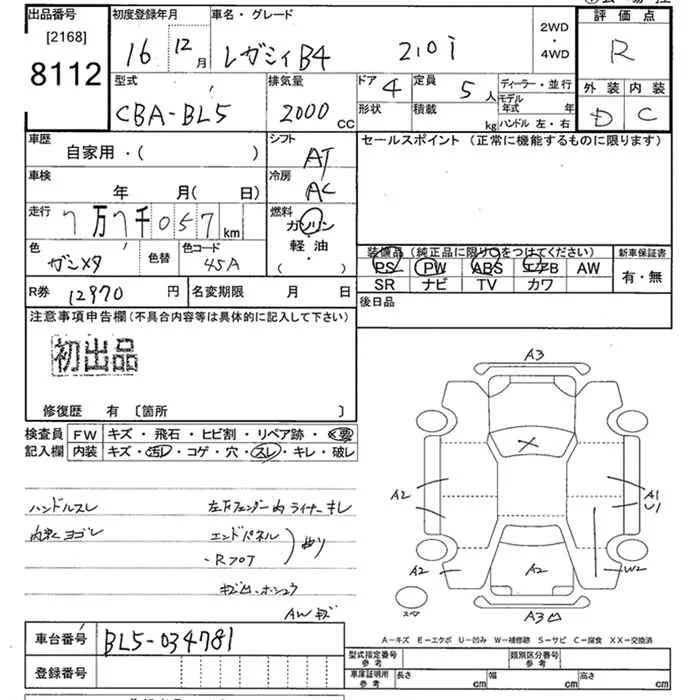 出品番号
[2168]
8112
初度登録年月
16 12月
車名・グレード
レガシィB4 2.0i
2WD
・
4WD
評価点
R
型式
CBA-BL5
排気量
2000 CC
ドア 4
形状
定員 5 人
積載 kg
ディーラー・並行
モデル年式 年
ハンドル 左・右
外装 内装
D C
車歴
自家用・( )
シフト
AT
セールスポイント (正常に機能するものに限ります)
車検
年 月( 日)
冷房
AC
走行
7万7千057km
燃料
ガソリン
軽油
( ・ )
色
ガンメタ
色替
色コード
45A
装備品 (純正品に限り○をつけてください)
PS PW ABS エアB AW
SR ナビ TV カワ
新車保証書
有・無
R券 12970 円
名変期限 月 日
後日品
注意事項申告欄(不具合内容等は具体的に記入して下さい)
初出品
修復歴 有 〔箇所 〕
検査員記入欄
FW キズ・飛石・ヒビ割・リペア跡・X要
内装 キズ・汚レ・コゲ・穴・スレ・キレ・破レ
ハンドルスレ
内張ヨゴレ
左Fフェンダー内ライナーキレ
エンドパネル
・Rフロア
曲り
AWキズ
A3
X
A2
A1
U1
A2
A2
W2
スペア
A3凹
車台番号 BL5-034781
登録番号
A-キズ E-エクボ U-凹み W-補修跡 S-サビ C-腐食 XX-交換済
型式指定番号
参考
類別区分番号
参考
車庫証明用
参考
長さ cm
幅 cm
高さ cm